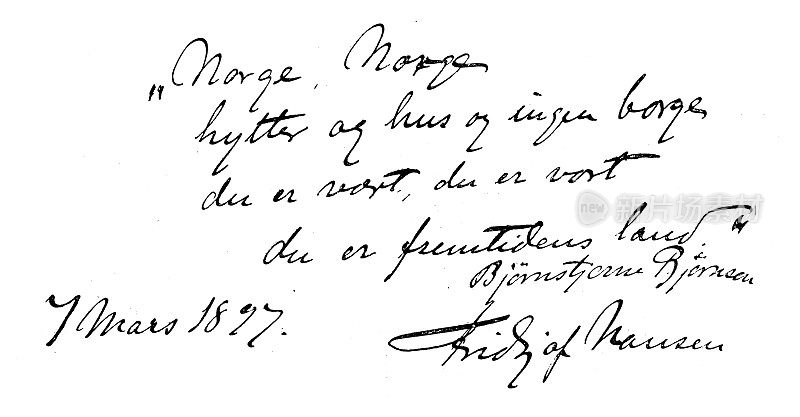 „Norge, Norge
hytter og hus og ingen borge
du er vort, du er vort
du er fremtidens land."
Björnstjerne Björnsen
7 Mars 1897.
Fridtjof Nansen
new 新片场素材